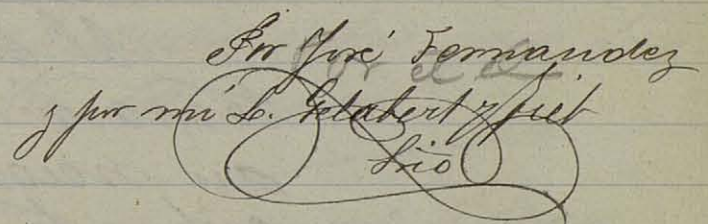 Por José Fernandez
y por mi L. Gelabert y
Srio